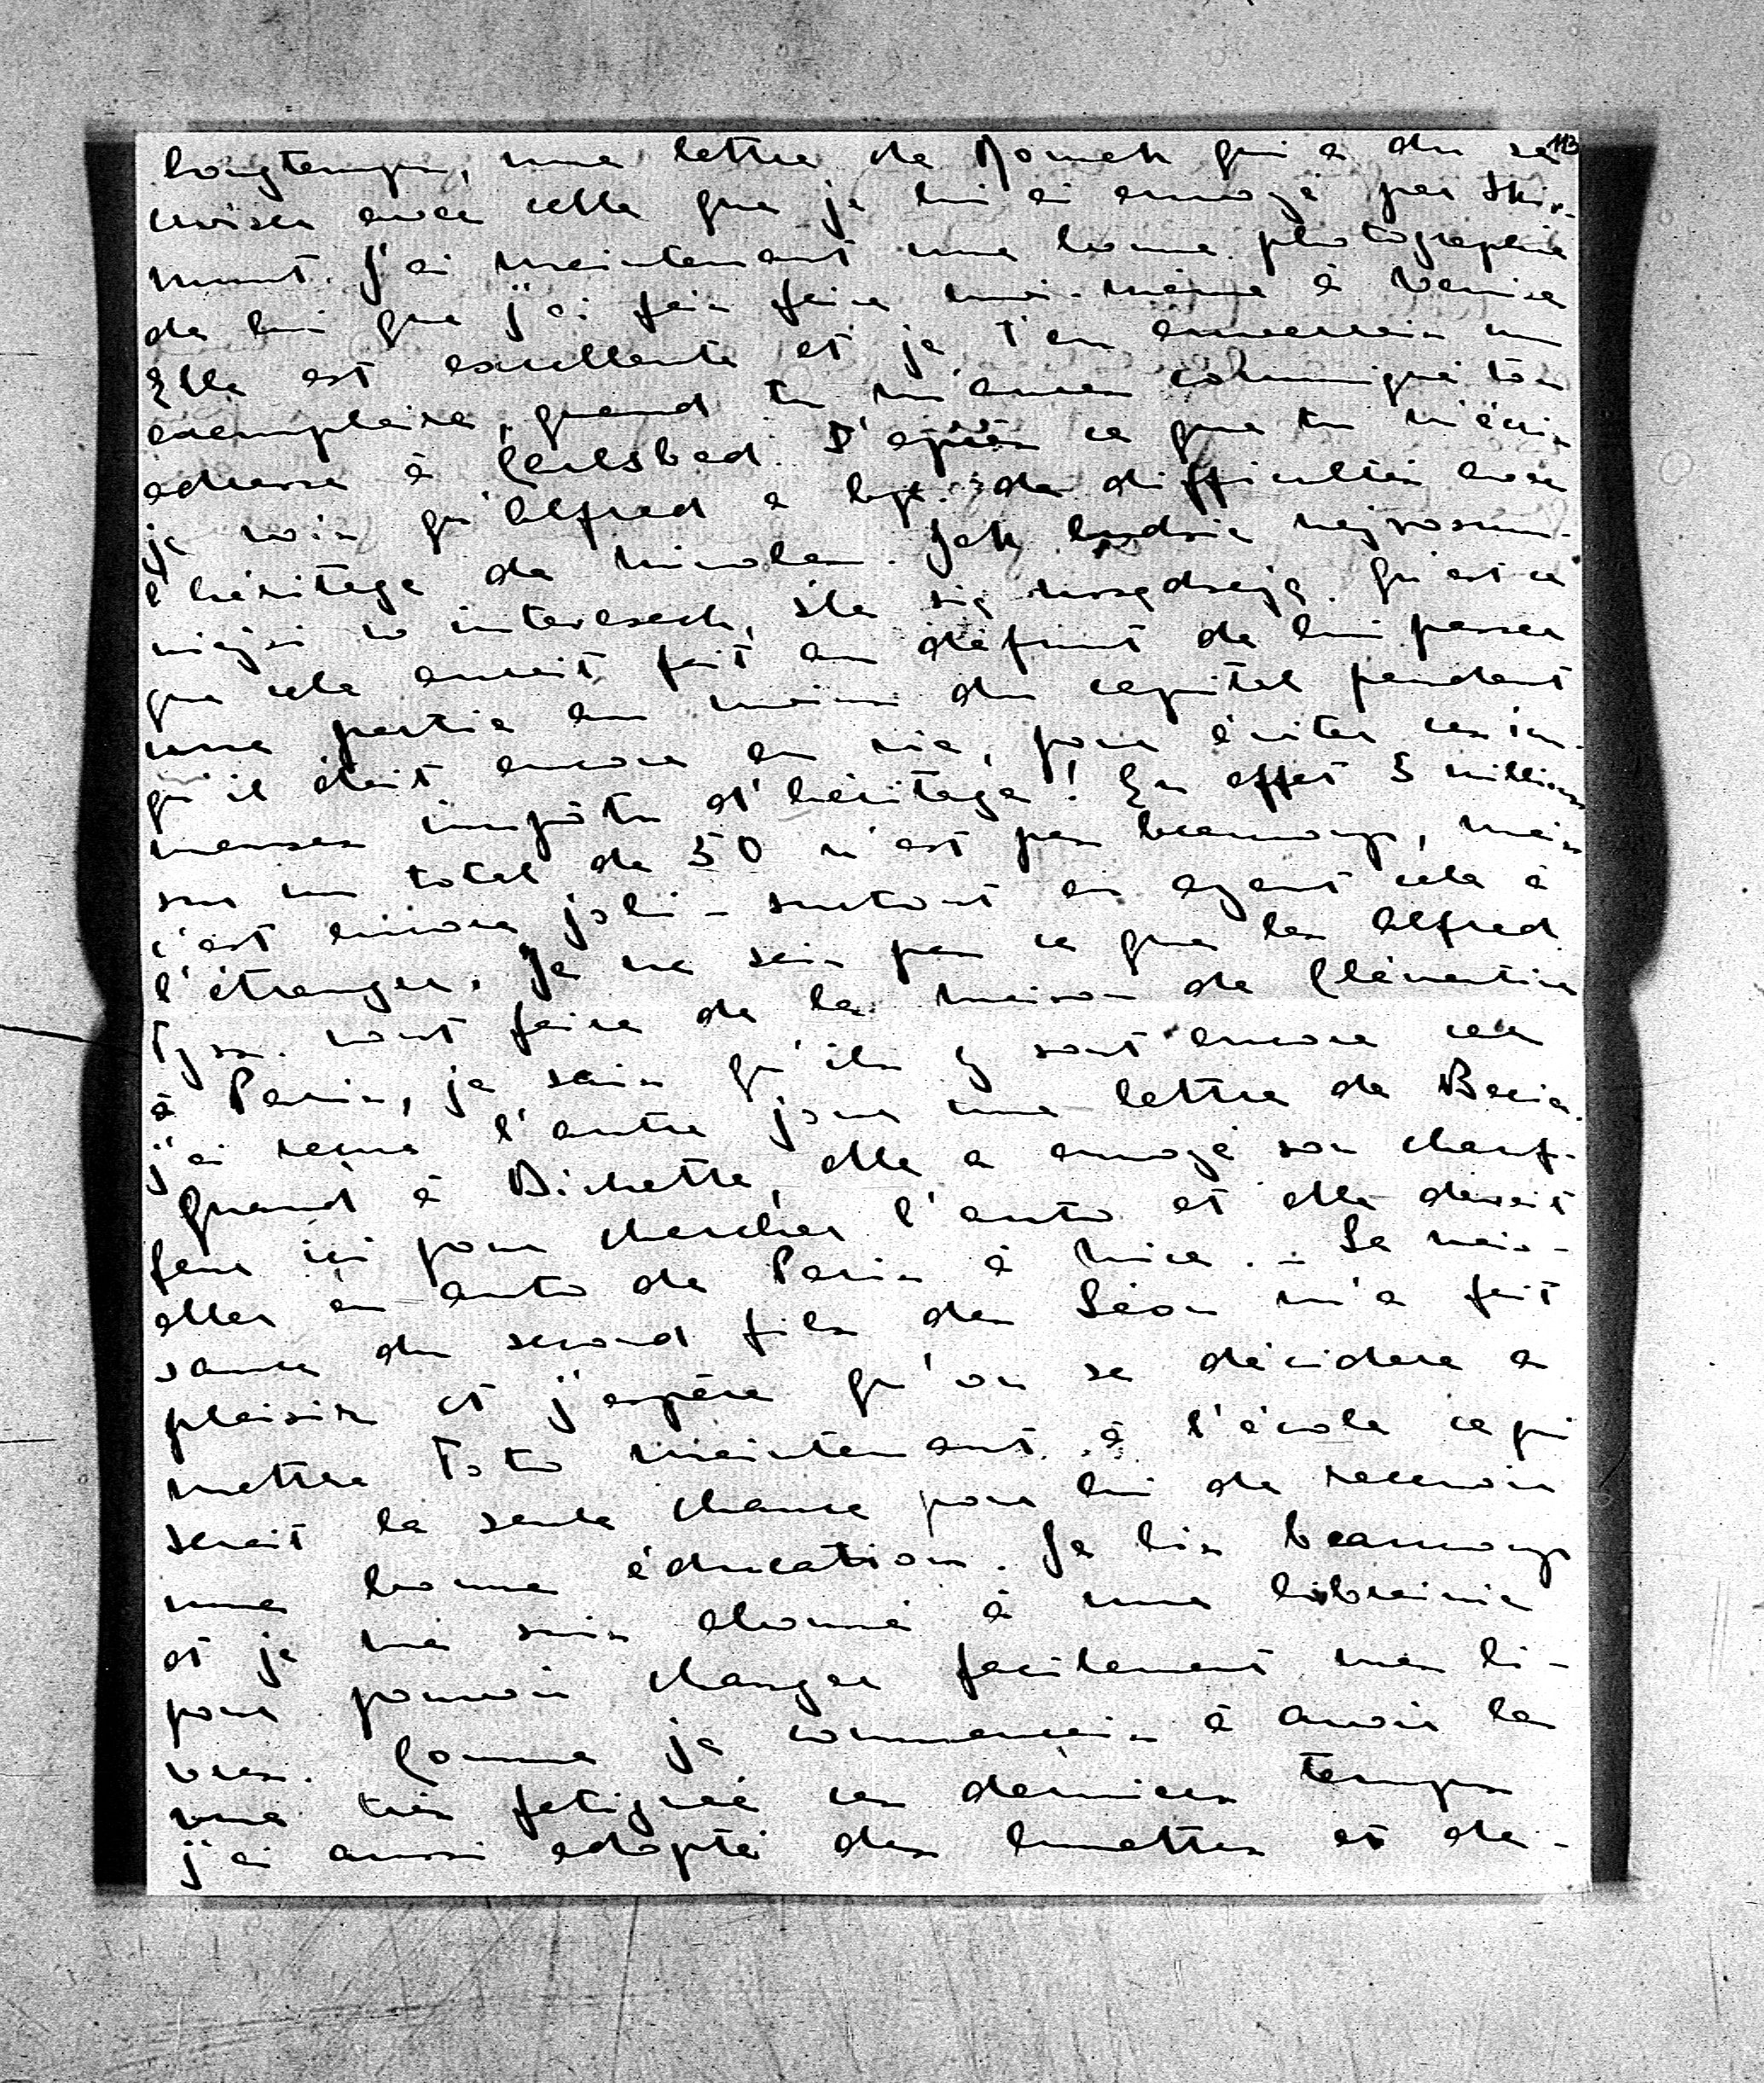 113
longtemps, une lettre de Romek qui a du se
croiser avec celle que je lui ai envoyé par Skir-
munt. J'ai maintenant une bonne photographie
de lui que j'ai fais faire moi-même à Venise
Elle est excellente et je t'en enverrais un
exemplaire, quand tu m'auras communiqué ton
adresse à Carlsbad. D'après ce que tu m'écris
je vois qu'Alfred a de difficultés avec
l'héritage de Nicolas. Jak ludzie najrozum-
niejsi w interesach, źle się rządzają. Qu'est ce
que cela aurait fait au défunt de lui passer
une partie au moins du capital pendant
qu'il était encore en vie, pour éviter ces im-
menses impôts d'héritage! En effet 5 millions
sur un total de 50 n'est pas beaucoup, mais
c'est encore joli - surtout en ayant cela à
l'étranger. Je ne sais pas ce que les Alfred
Tysz. vont faire de la maison de Clémentine
à Paris, je sais qu'ils y sont encore car
j'ai reçue l'autre jour une lettre de Becia.
Quand à Bichette, elle a envoyé son chauf-
feur ici pour chercher l'auto et elle devait
aller en auto de Paris à Nice. - La nais-
sance du second fils des Léon m'a fait
plaisir et j'espère qu'on se décidera a
mettre Toto maintenant à l'école ce qui
serait la seule chance pour lui de recevoir
une bonne éducation. Je lis beaucoup
et je me suis abonné à une librairie
pour pouvoir changer facilement mes li-
vres. Comme je commençais à avoir la
vue très fatiguée ces derniers temps
j'ai aussi adopté des lunettes et de-